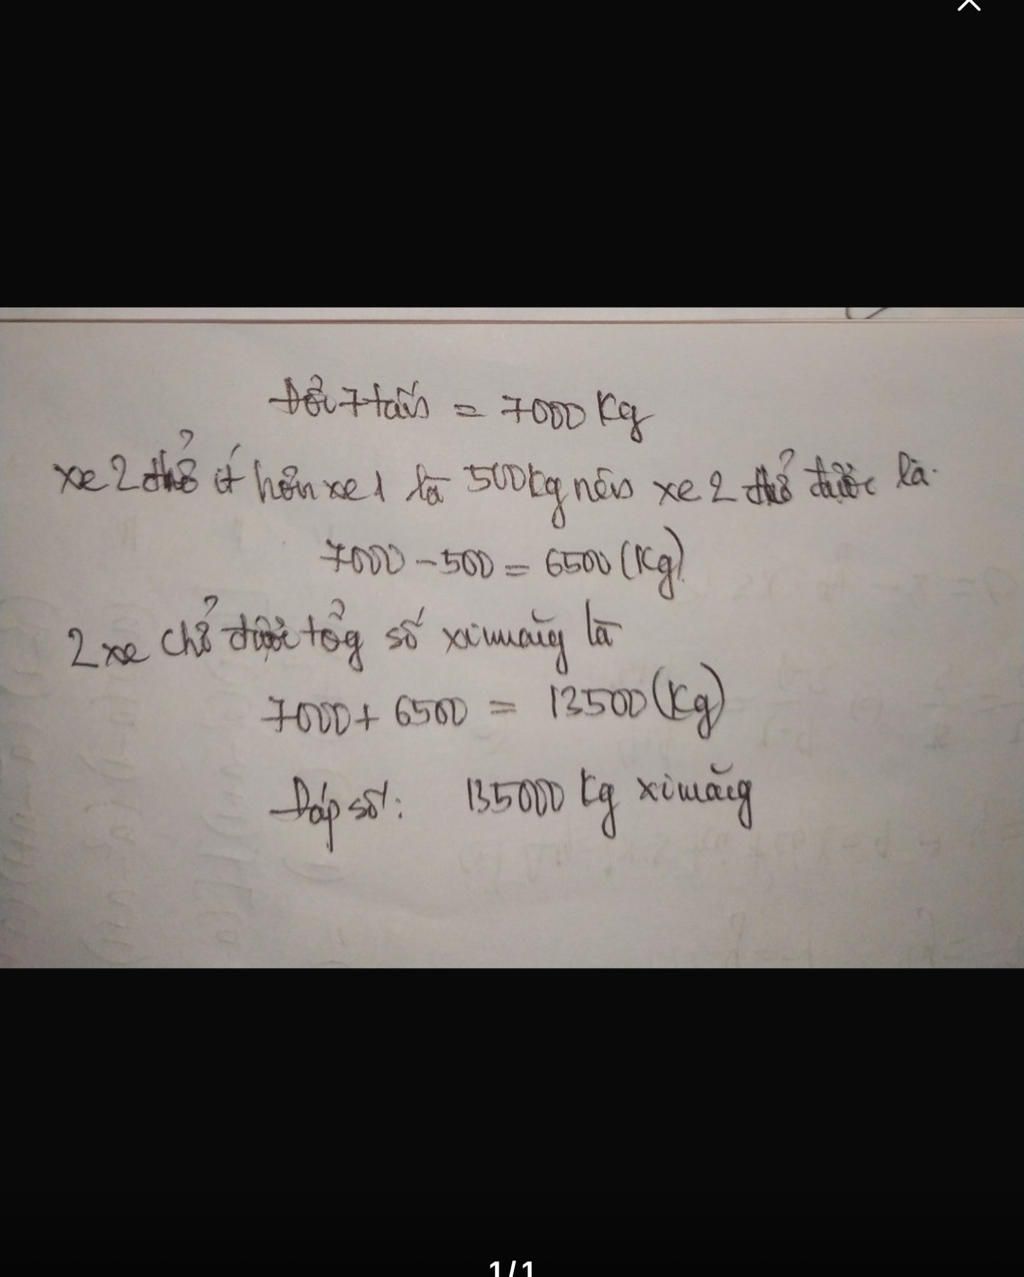 Đổi 7 tấn = 7000 Kg
xe 2 chở ít hơn xe 1 là 500kg nên xe 2 chở được là.
7000 - 500 = 6500 (Kg)
2 xe chở được tổg số ximăng là
7000 + 6500 = 13500 (Kg)
Đáp số: 135000 kg ximăng
1/1